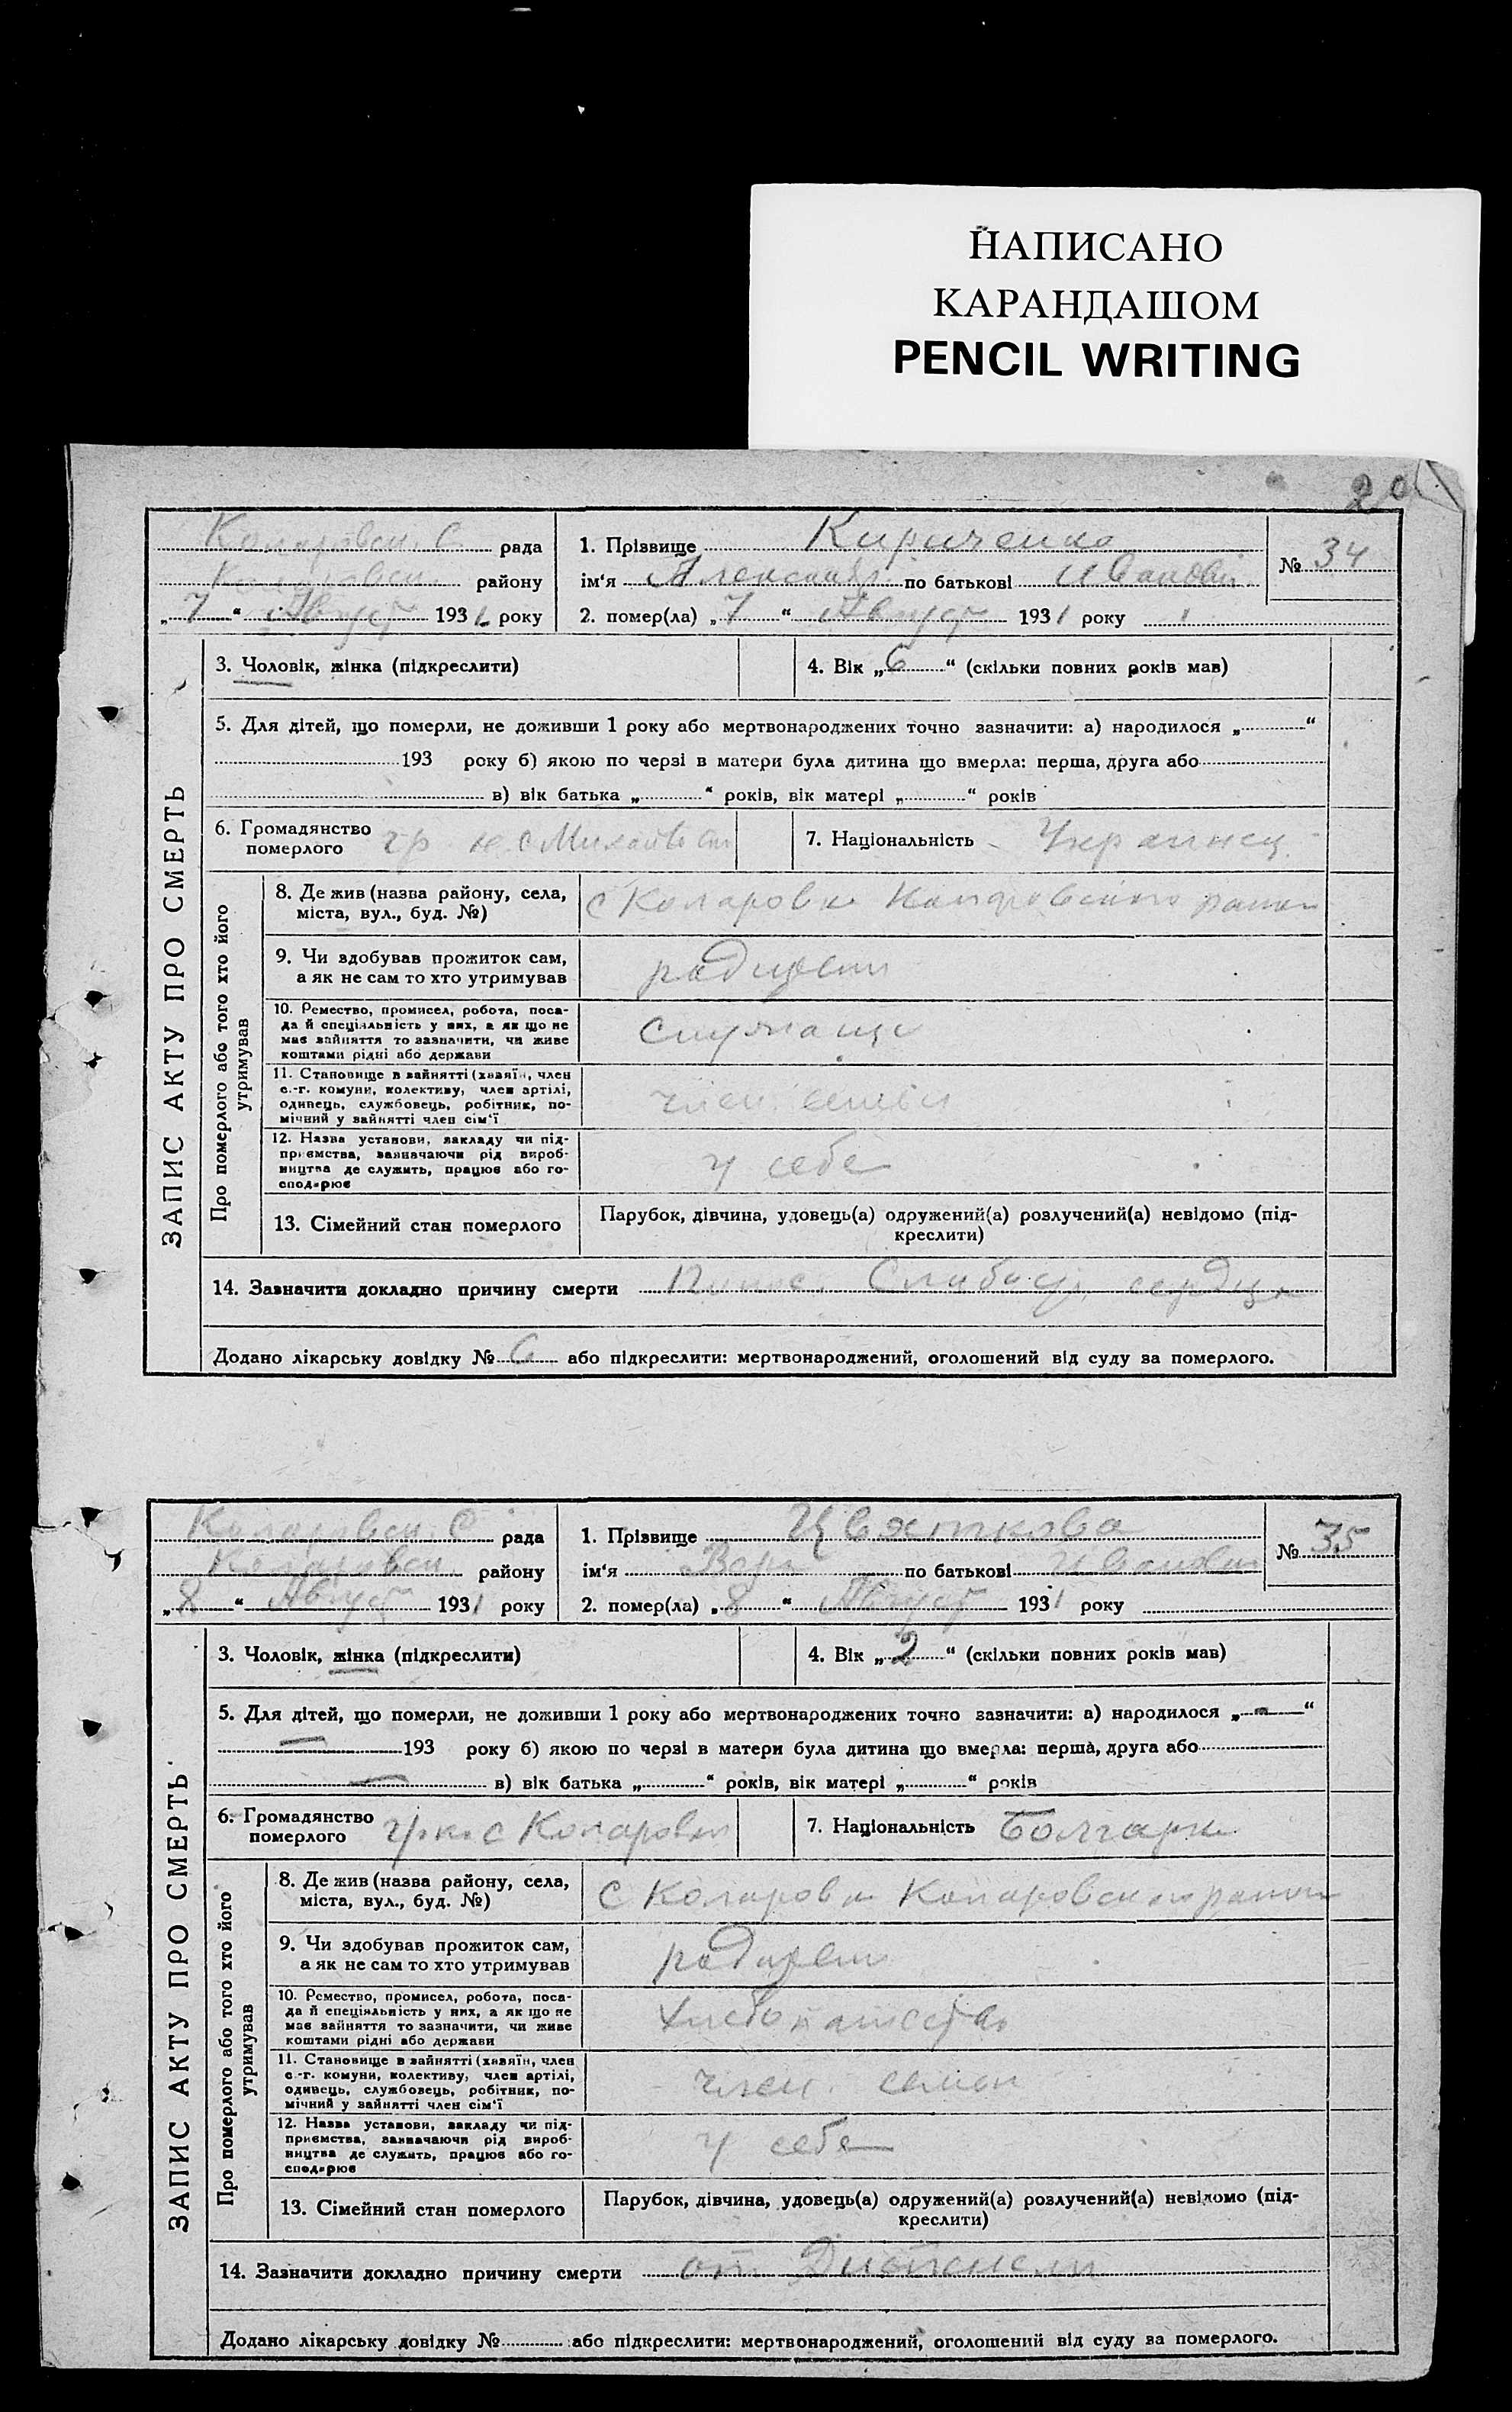 НАПИСАНО
КАРАНДАШОМ
PENCIL WRITING
20
Коларовск. С рада
Коларовск. району
„7“ Август 1931 року
1. Прізвище Кириченко
ім'я Александр по батькові Иванович
№ 34
2. помер(ла) „7“ Август 1931 року
ЗАПИС АКТУ ПРО СМЕРТЬ
3. Чоловік, жінка (підкреслити)
4. Вік „6“ (скільки повних років мав)
5. Для дітей, що померли, не доживши 1 року або мертвонароджених точно зазначити: а) народилося „ “
193 року б) якою по черзі в матери була дитина що вмерла: перша, друга або
в) вік батька „ “ років, вік матері „ “ років
6. Громадянство
померлого гр. с
7. Національність Украинец
Про померлого або того хто його
утримував
8. Де жив (назва району, села,
міста, вул., буд. №)
с Коларовка Коларовского района
9. Чи здобував прожиток сам,
а як не сам то хто утримував
родители
10. Ремество, промисел, робота, поса-
да й спеціяльність у них, а як що не
має зайняття то зазначити, чи живе
коштами рідні або держави
служащи
11. Становище в зайнятті (хазяїн, член
с.-г. комуни, колективу, член артілі,
одинець, службовець, робітник, по-
мічний у зайнятті член сім'ї
член семьи
12. Назва установи, закладу чи під-
приємства, зазначаючи рід вироб-
ництва де служить, працює або го-
сподарює
у себе
13. Сімейний стан померлого
Парубок, дівчина, удовець(а) одружений(а) розлучений(а) невідомо (під-
креслити)
14. Зазначити докладно причину смерти Слабост сердца
Додано лікарську довідку № 6 або підкреслити: мертвонароджений, оголошений від суду за померлого.
Коларовск. С рада
Коларовск. району
„8“ Август 1931 року
1. Прізвище Цвяткова
ім'я Вера по батькові Ивановн
№ 35
2. помер(ла) „8“ Август 1931 року
ЗАПИС АКТУ ПРО СМЕРТЬ
3. Чоловік, жінка (підкреслити)
4. Вік „2“ (скільки повних років мав)
5. Для дітей, що померли, не доживши 1 року або мертвонароджених точно зазначити: а) народилося „—“
— 193 року б) якою по черзі в матери була дитина що вмерла: перша, друга або
— в) вік батька „ “ років, вік матері „ “ років
6. Громадянство
померлого гр-ка с Коларовки
7. Національність Болгарка
Про померлого або того хто його
утримував
8. Де жив (назва району, села,
міста, вул., буд. №)
С Коларовка Коларовского района
9. Чи здобував прожиток сам,
а як не сам то хто утримував
родители
10. Ремество, промисел, робота, поса-
да й спеціяльність у них, а як що не
має зайняття то зазначити, чи живе
коштами рідні або держави
хлебопашество
11. Становище в зайнятті (хазяїн, член
с.-г. комуни, колективу, член артілі,
одинець, службовець, робітник, по-
мічний у зайнятті член сім'ї
член. семьи
12. Назва установи, закладу чи під-
приємства, зазначаючи рід вироб-
ництва де служить, працює або го-
сподарює
у себе
13. Сімейний стан померлого
Парубок, дівчина, удовець(а) одружений(а) розлучений(а) невідомо (під-
креслити)
14. Зазначити докладно причину смерти от
Додано лікарську довідку № або підкреслити: мертвонароджений, оголошений від суду за померлого.